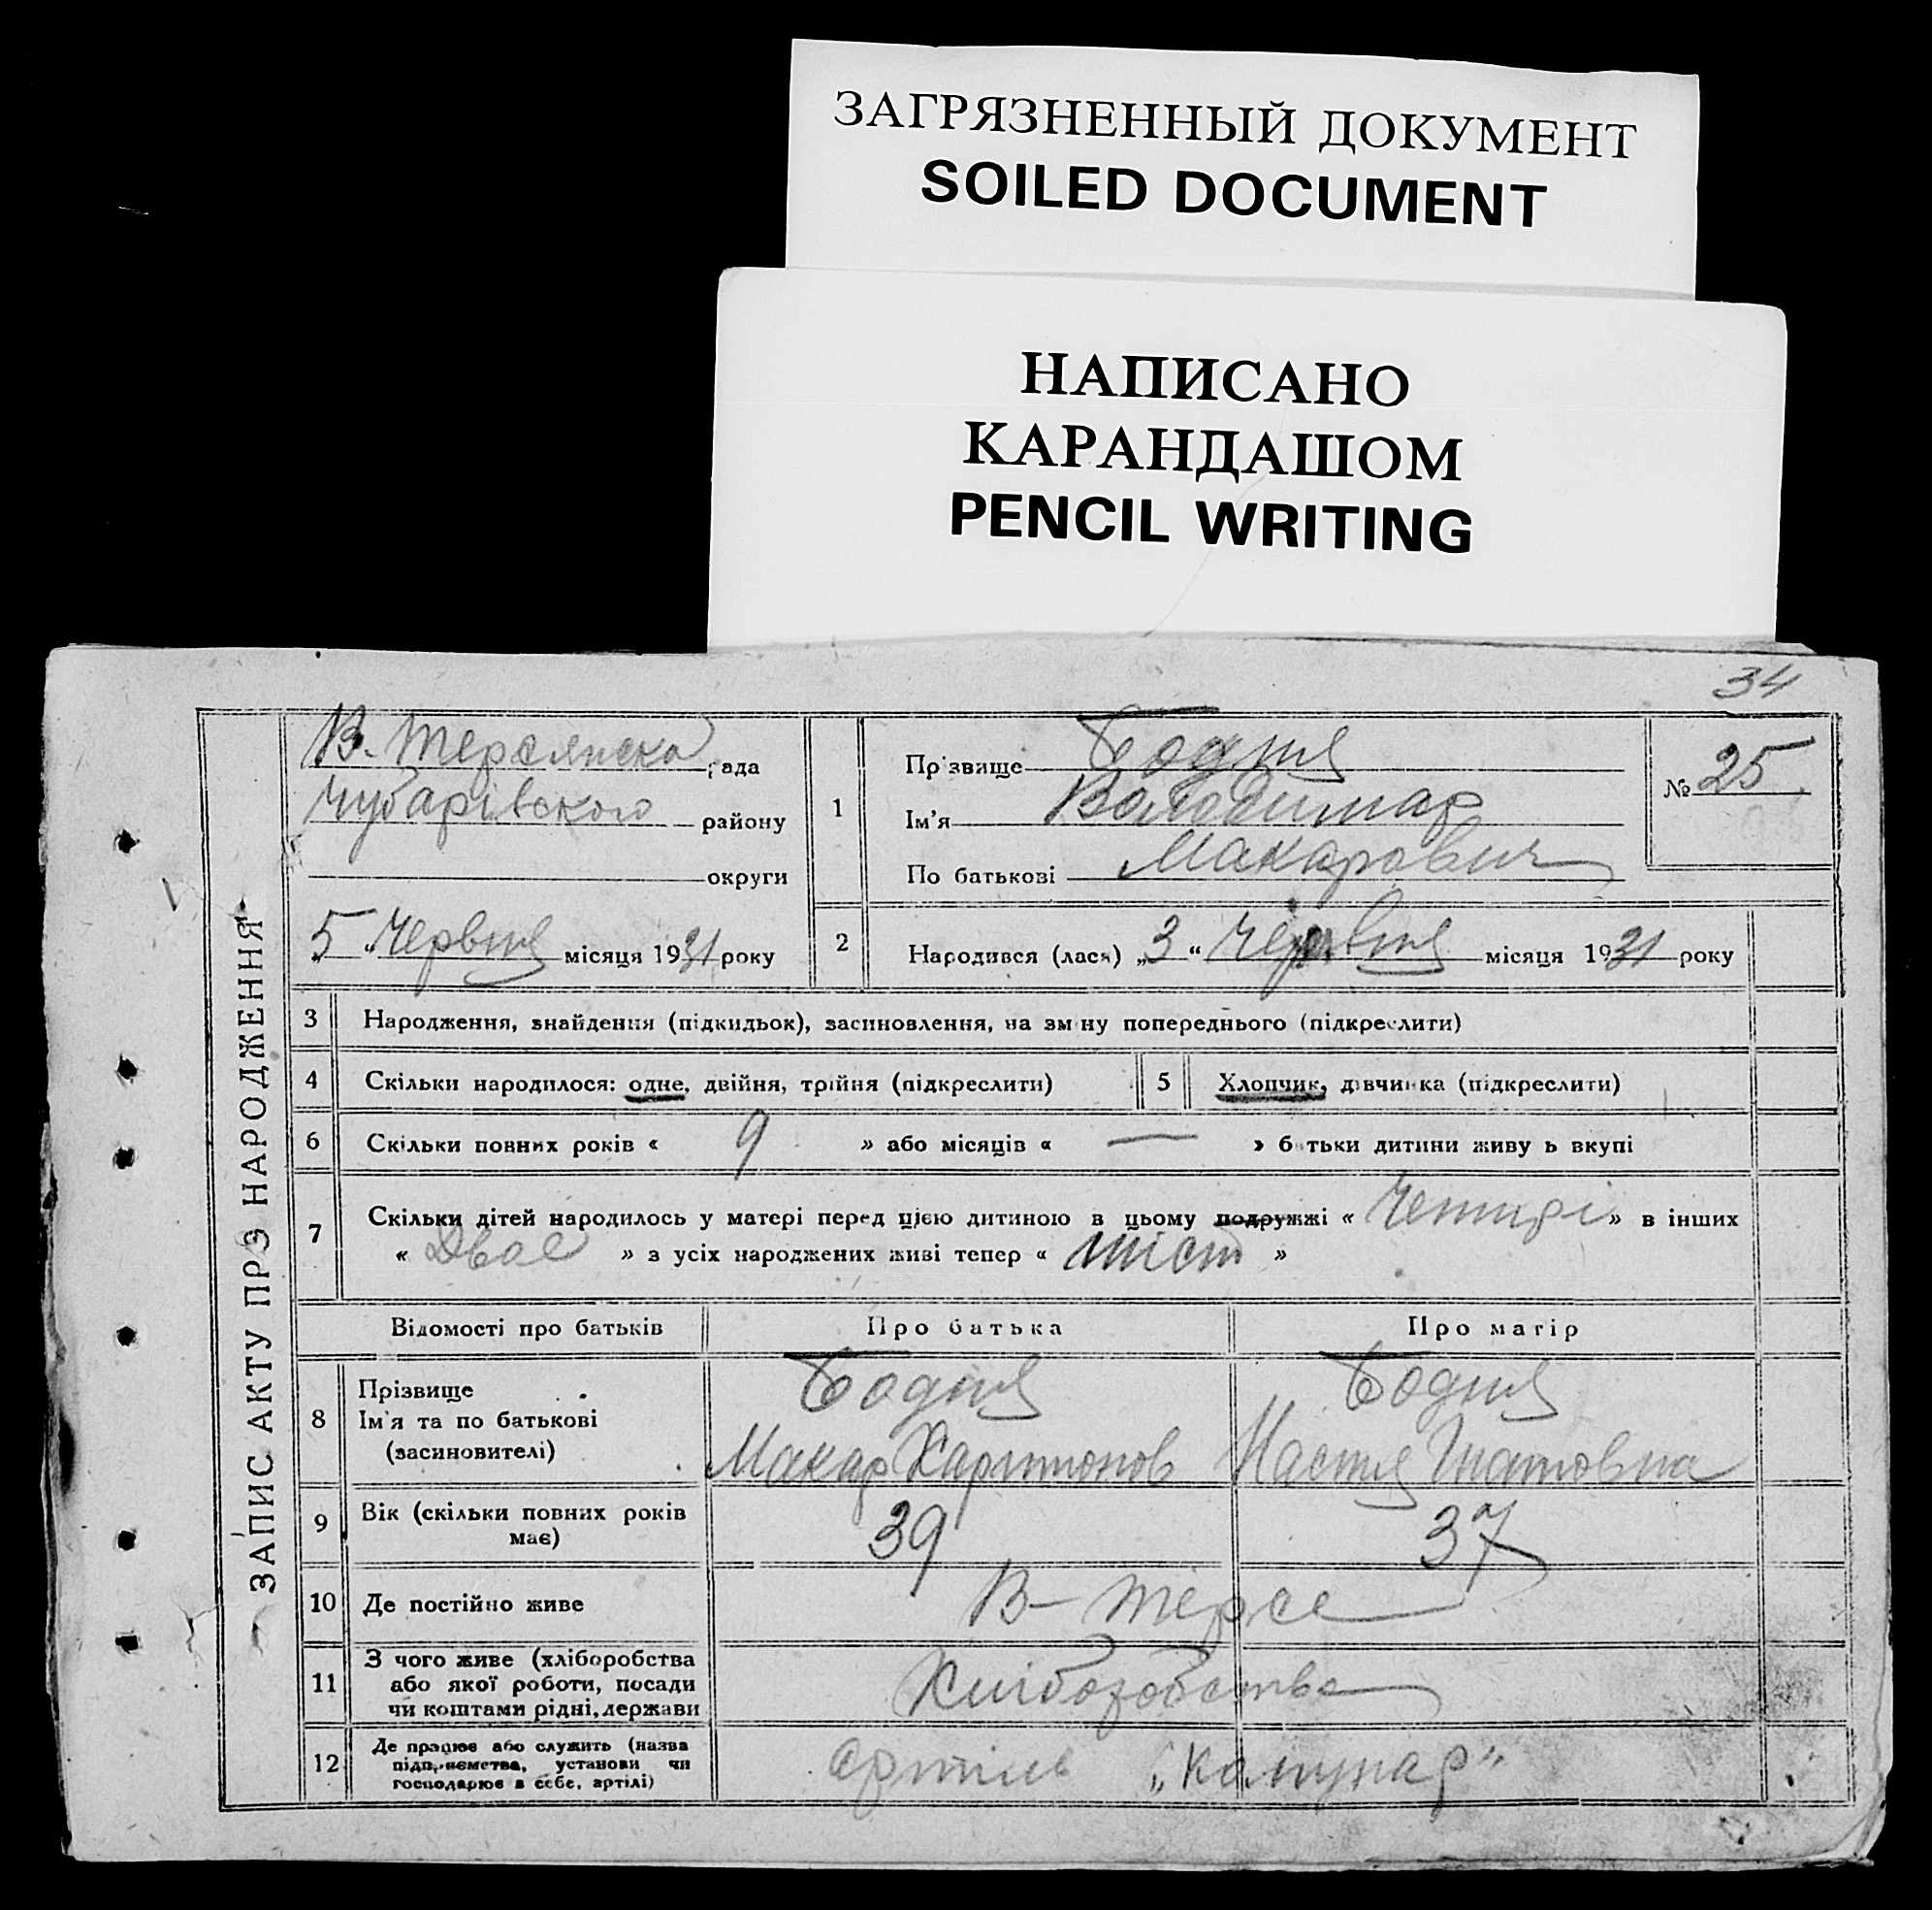 ЗАГРЯЗНЕННЫЙ ДОКУМЕНТ
SOILED DOCUMENT
НАПИСАНО
КАРАНДАШОМ
PENCIL WRITING
34
ЗАПИС АКТУ ПРЗ НАРОДЖЕННЯ
В. Терсянска рада
Чубарівского району
округи
„5 “ Червня місяця 1931 року
1
Прізвище Бодня
Ім'я Володимар
По батькові Макарович
№ 25
2 Народився (лася) „3 “ Червня місяця 1931 року
3 Народження, знайдення (підкидьок), засиновлення, на зміну попереднього (підкреслити)
4 Скільки народилося: одне, двійня, трійня (підкреслити)
5 Хлопчик, дівчинка (підкреслити)
6 Скільки повних років « 9 » або місяців « — » батьки дитини живуть вкупі
7 Скільки дітей народилось у матері перед цією дитиною в цьому подружжі « Чотирі » в інших
« Двое » з усіх народжених живі тепер « шіст »
Відомості про батьків Про батька Про матір
8 Прізвище
Ім'я та по батькові
(засиновителі)
Бодня
Макар Харитонов
Бодня
Настя
9 Вік (скільки повних років
має)
39 37
10 Де постійно живе В-Терсе
11 З чого живе (хліборобства
або якої роботи, посади
чи коштами рідні, держави
Хліборобство
12 Де працює або служить (назва
підприємства, установи чи
господарює в себе, артілі)
Артиль „Комунар"